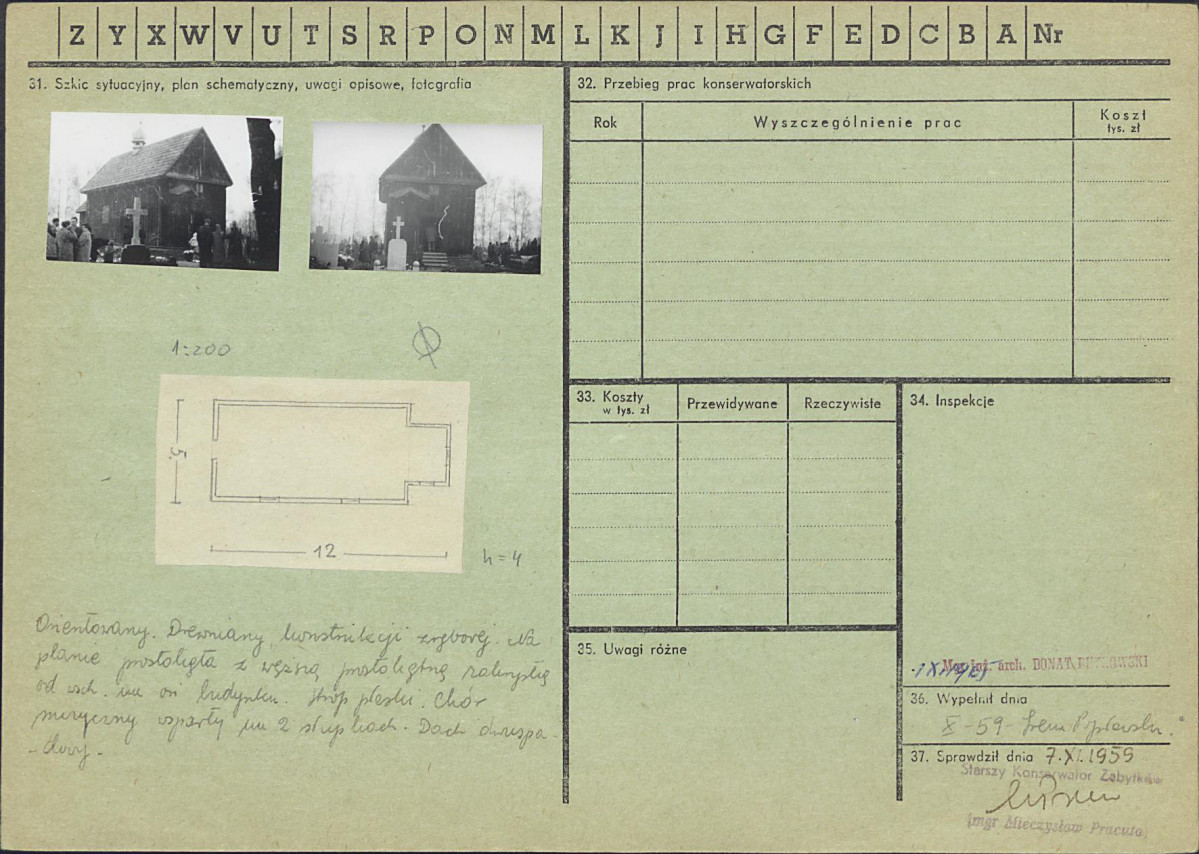 Z Y X W V U T S R P O N M L K J I H G F E D C B A Nr
31. Szkic sytuacyjny, plan schematyczny, uwagi opisowe, fotografia
1:200
5.
12
h = 4
Orientowany. Drewniany, konstrukcji zrębowej. Na
planie prostokąta z węższą prostokątną zakrystią
od wsch. na osi budynku. Strop płaski. Chór
muzyczny wsparty na 2 słupkach. Dach dwuspa-
-dowy.
32. Przebieg prac konserwatorskich
Rok
Wyszczególnienie prac
Koszt
tys. zł
33. Koszty
w tys. zł
Przewidywane
Rzeczywiste
34. Inspekcje
Mgr inż. arch. DONAT
35. Uwagi różne
36. Wypełnił dnia
X - 59 - Irena
37. Sprawdził dnia 7.XI.1959
Starszy Konserwator Zabytków
(mgr Mieczysław Pracuta)